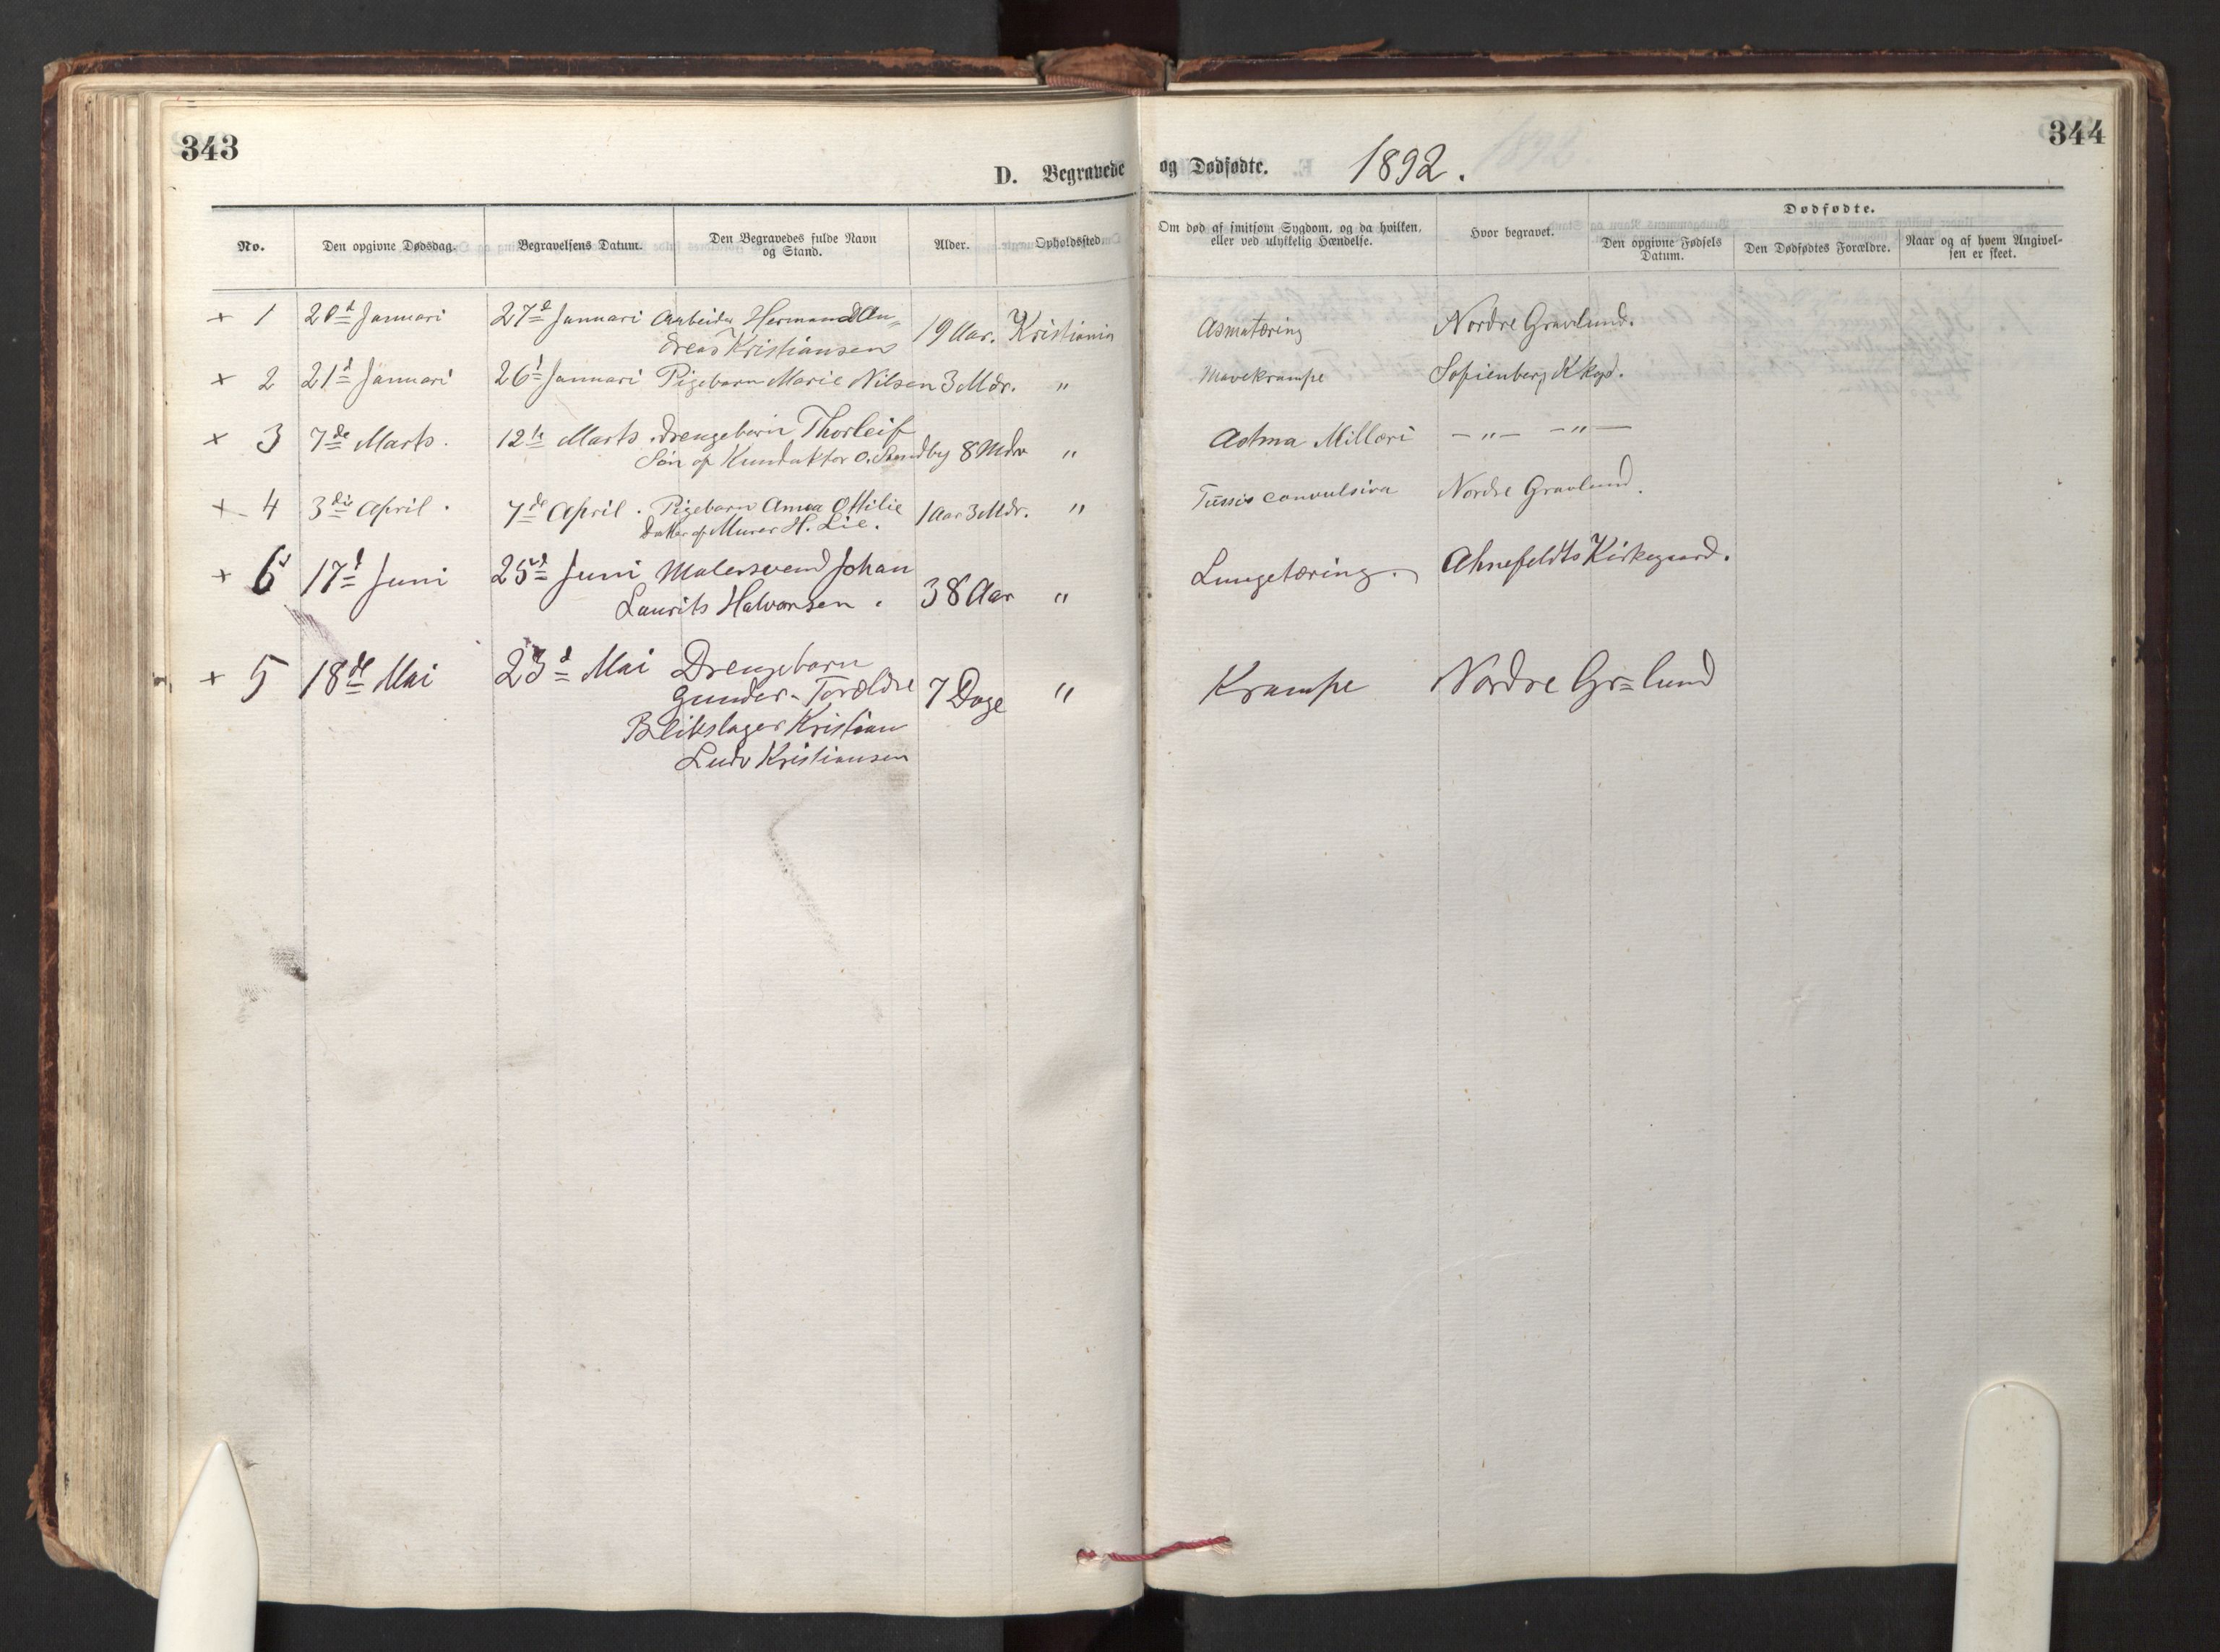 343
344
D. Begravede og Dødfødte. 1892.
No. Den opgivne Dødsdag. Begravelsens Datum. Den Begravedes fulde Navn og Stand. Alder. Opholdssted Om død af smitsom Sygdom, og da hvilken, eller ved ulykkelig Hændelse. Hvor begravet. Dødfødte.
Den opgivne Fødsels Datum. Den Dødfødtes Forældre. Naar og af hvem Angivelsen er skeet.
+ 1 20d Januari 27d Januari Arbeider Hermand An„ 19 Aar. Kristiania Asmatæring Nordre Gravlund.
dreas Kristiansen
+ 2 21d Januari 26d Januari Pigebarn Marie Nilsen 3 Mdr. " Mavekrampe Sofienberg Kkgd.
+ 3 7de Marts. 12te Marts. Drengebarn Thorleif
Søn af Kunduktør O. Sandby 8 Mdr " Astma Millari —"— —"—
+ 4 3die April. 7de April. Pigebarn Anna Ottilie 1 Aar 3 Mdr. " Tussis convulsiva Nordre Gravlund.
Datter af Murer H. Lie.
+ 6 17d Juni 25d Juni Malersvend Johan Lungetæring. Ahnefeldts Kirkegaard.
Laurits Halvorsen. 38 Aar "
+ 5 18de Mai 23d Mai Drengebarn
Gunder - Forældre 7 Dage " Krampe Nordre Gr=lund
Blikslager Kristian
Ludv Kristiansen